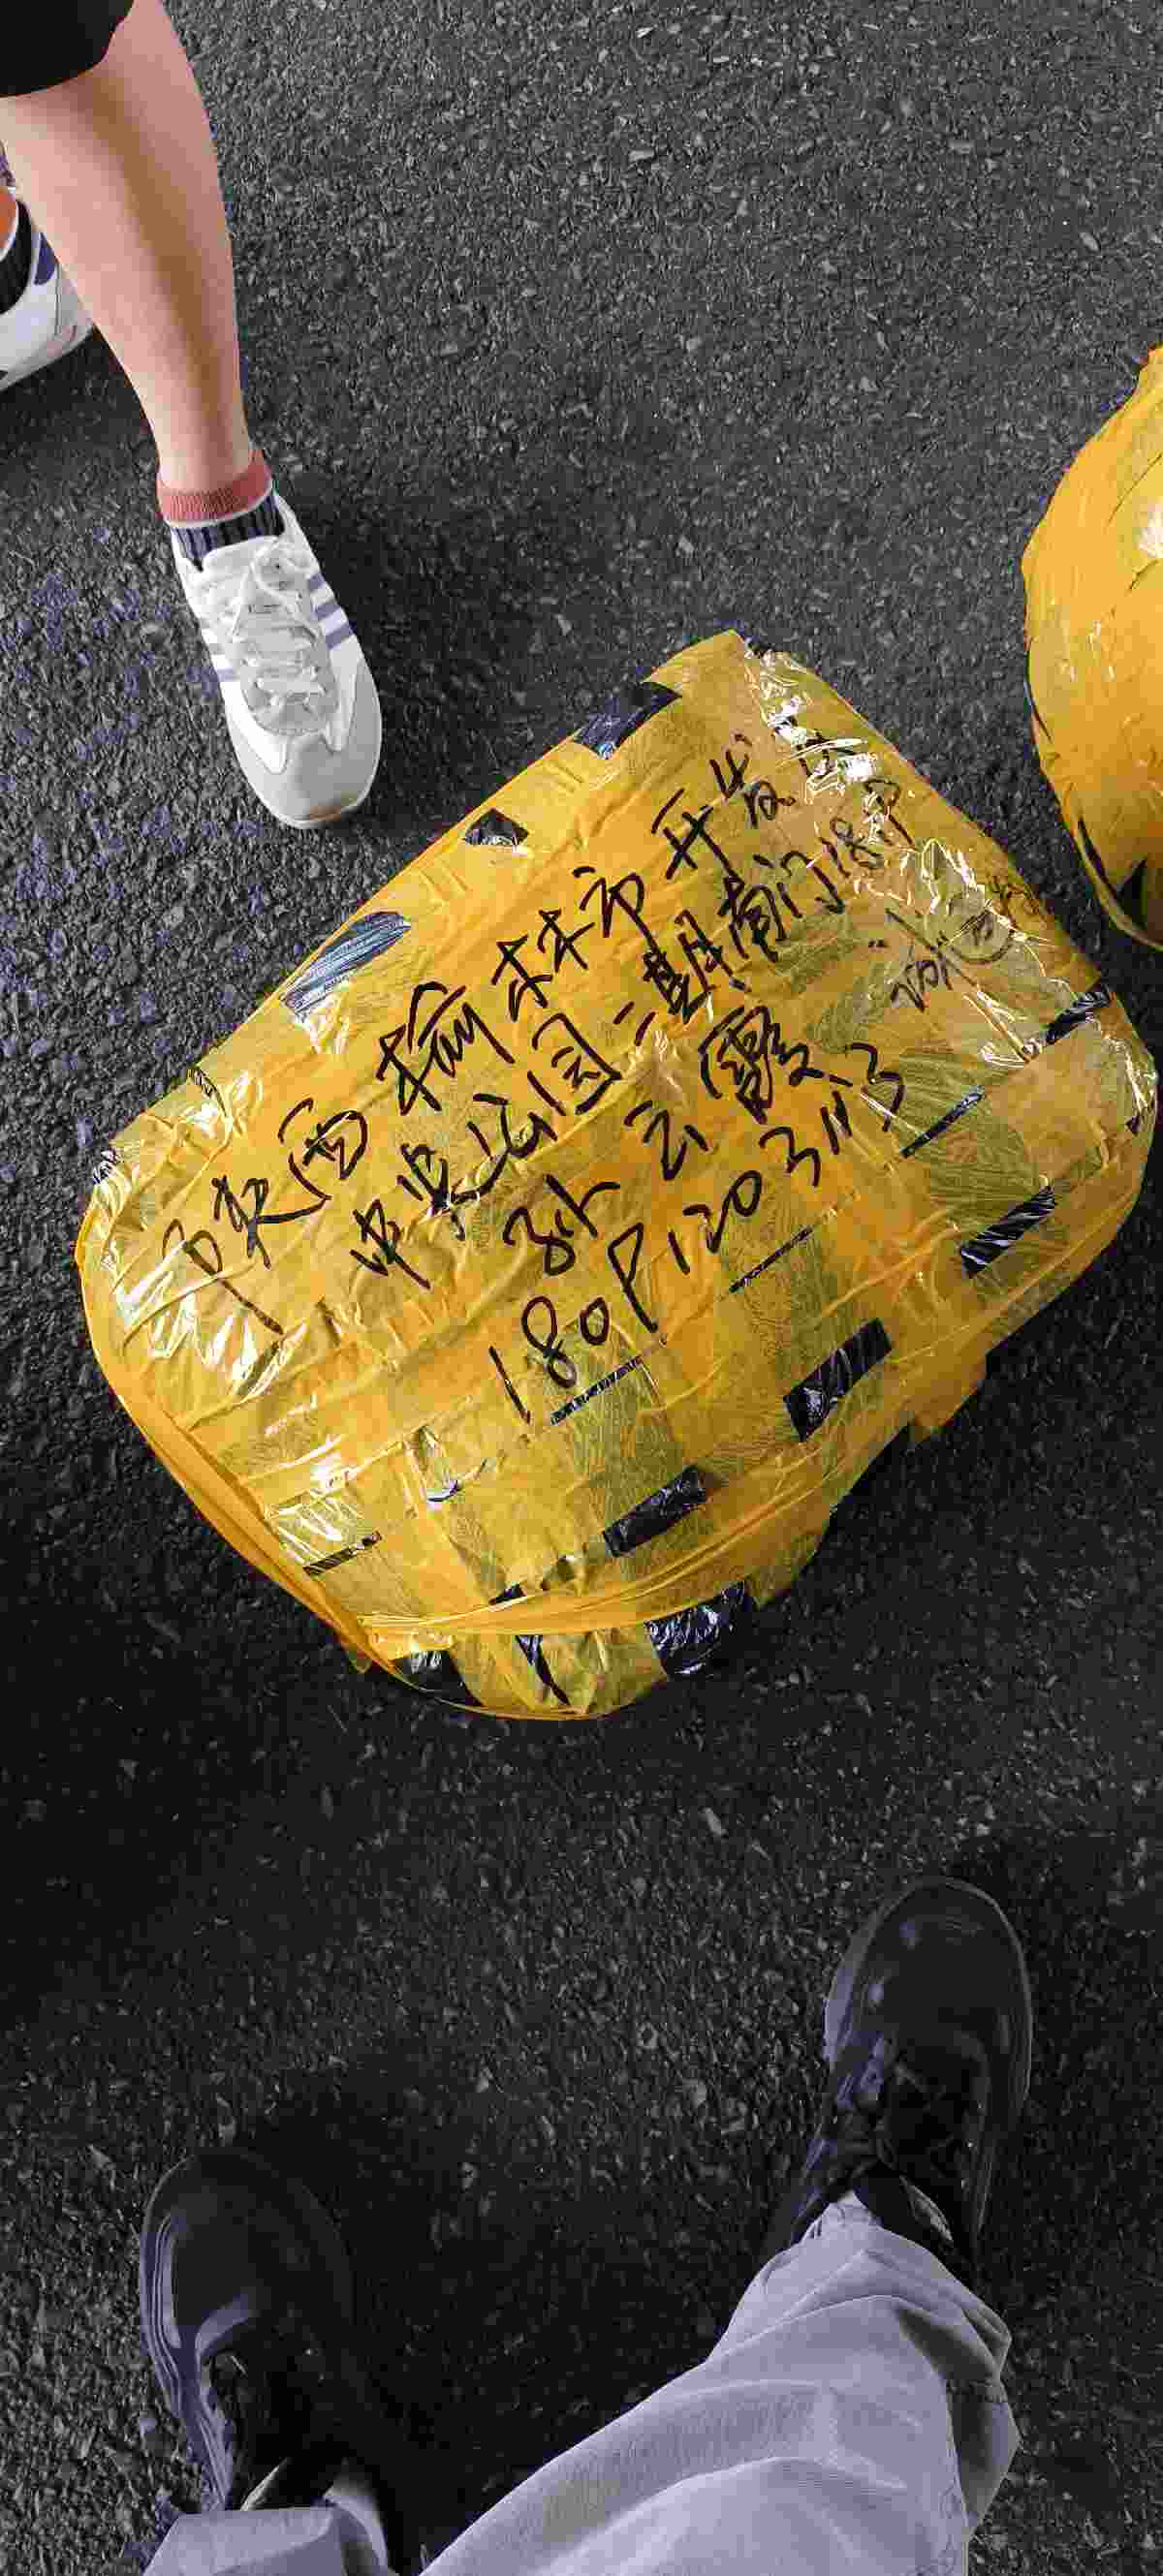 陕西榆林市开发区
中央公园二期南门18号
孙云霞
180P1203113